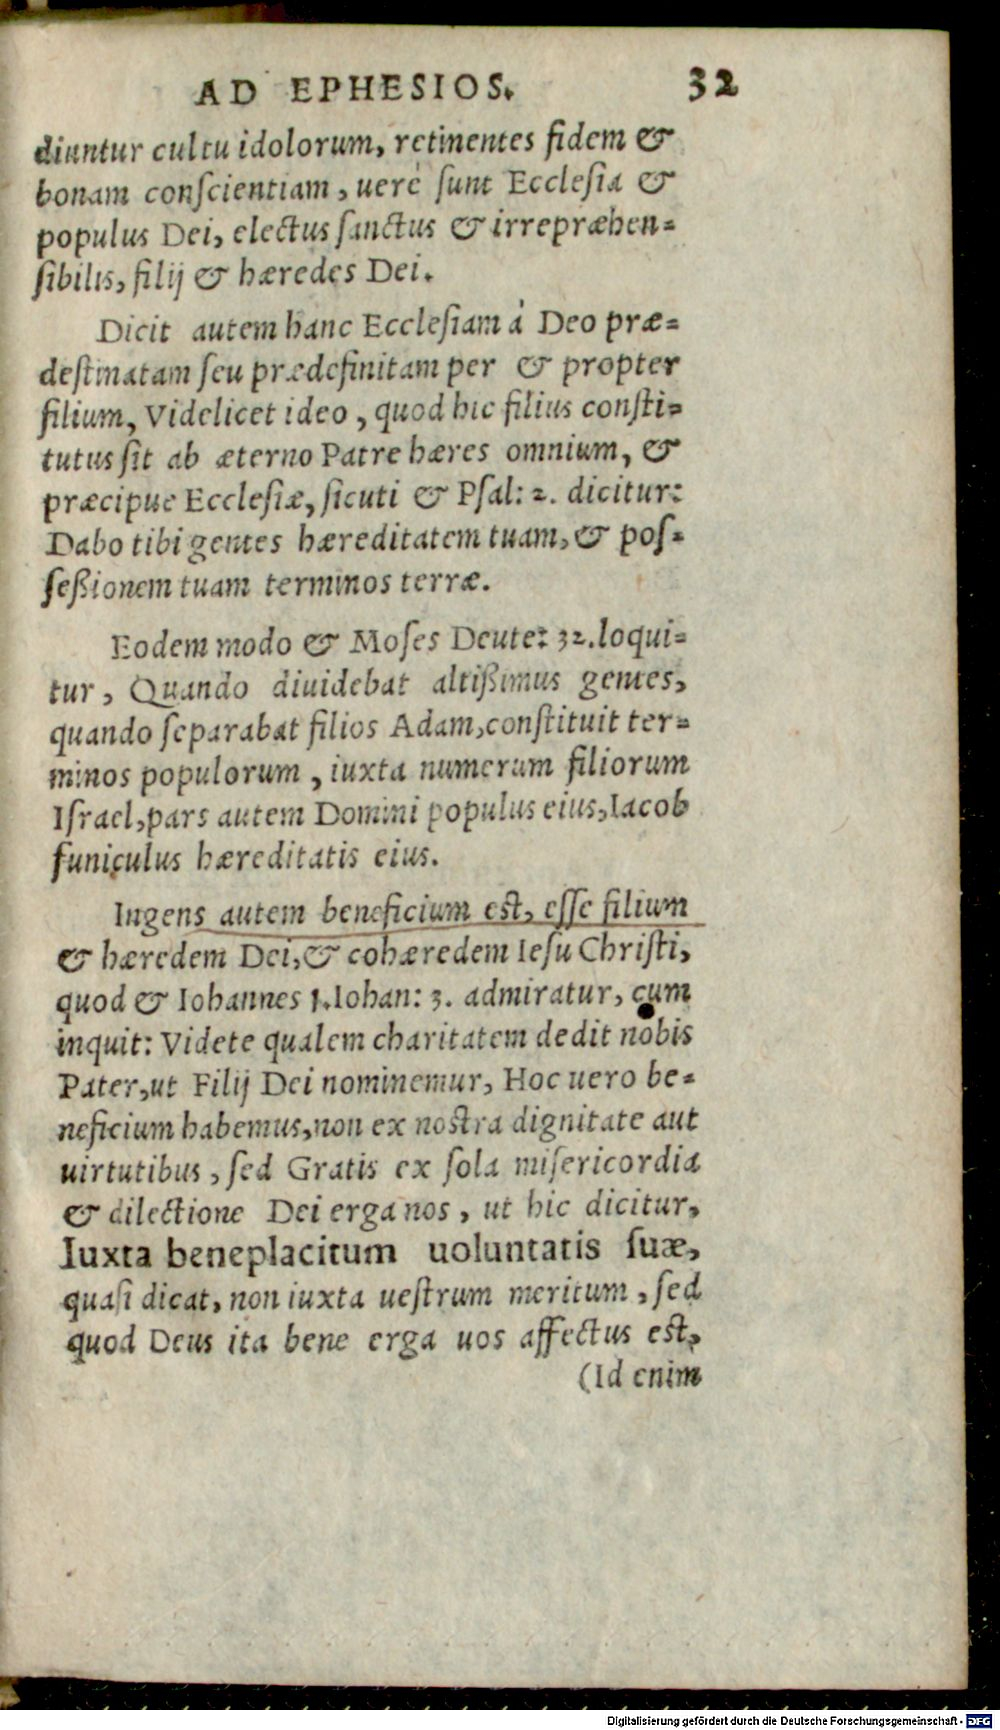 AD EPHESIOS. 32
diuntur cultu idolorum, retinentes fidem &
bonam conscientiam, uerè sunt Ecclesia &
populus Dei, electus sanctus & irrepræhen-
sibilis, filij & hæredes Dei.
Dicit autem hanc Ecclesiam à Deo præ-
destinatam seu prædefinitam per & propter
filium, Videlicet ideo, quod hic filius consti-
tutus sit ab æterno Patre hæres omnium, &
præcipue Ecclesiæ, sicuti & Psal: 2. dicitur:
Dabo tibi gentes hæreditatem tuam, & pos-
seßionem tuam terminos terræ.
Eodem modo & Moses Deute: 32. loqui-
tur, Quando diuidebat altißimus gentes,
quando separabat filios Adam, constituit ter-
minos populorum, iuxta numerum filiorum
Israel, pars autem Domini populus eius, Iacob
funiculus hæreditatis eius.
Ingens autem beneficium est, esse filium
& hæredem Dei, & cohæredem Iesu Christi,
quod & Iohannes 1. Iohan: 3. admiratur, cum
inquit: Videte qualem charitatem dedit nobis
Pater, ut Filij Dei nominemur, Hoc uero be-
neficium habemus, non ex nostra dignitate aut
uirtutibus, sed Gratis ex sola misericordia
& dilectione Dei erga nos, ut hic dicitur,
Iuxta beneplacitum uoluntatis suæ,
quasi dicat, non iuxta uestrum meritum, sed
quod Deus ita bene erga uos affectus est,
(Id enim
Digitalisierung gefördert durch die Deutsche Forschungsgemeinschaft - DFG